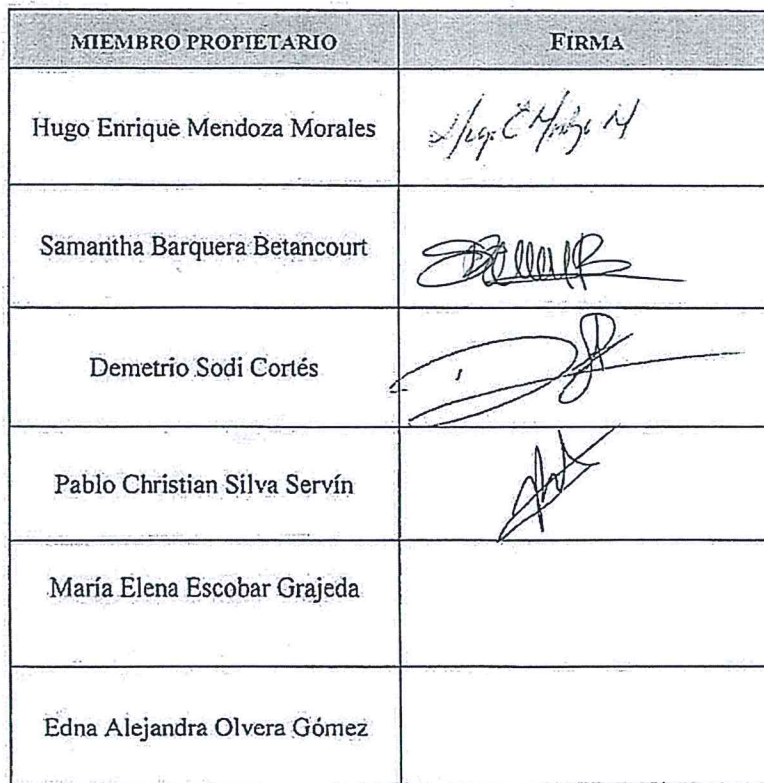 MIEMBRO PROPIETARIO FIRMA
Hugo Enrique Mendoza Morales
Samantha Barquera Betancourt
Demetrio Sodi Cortés
Pablo Christian Silva Servín
María Elena Escobar Grajeda
Edna Alejandra Olvera Gómez